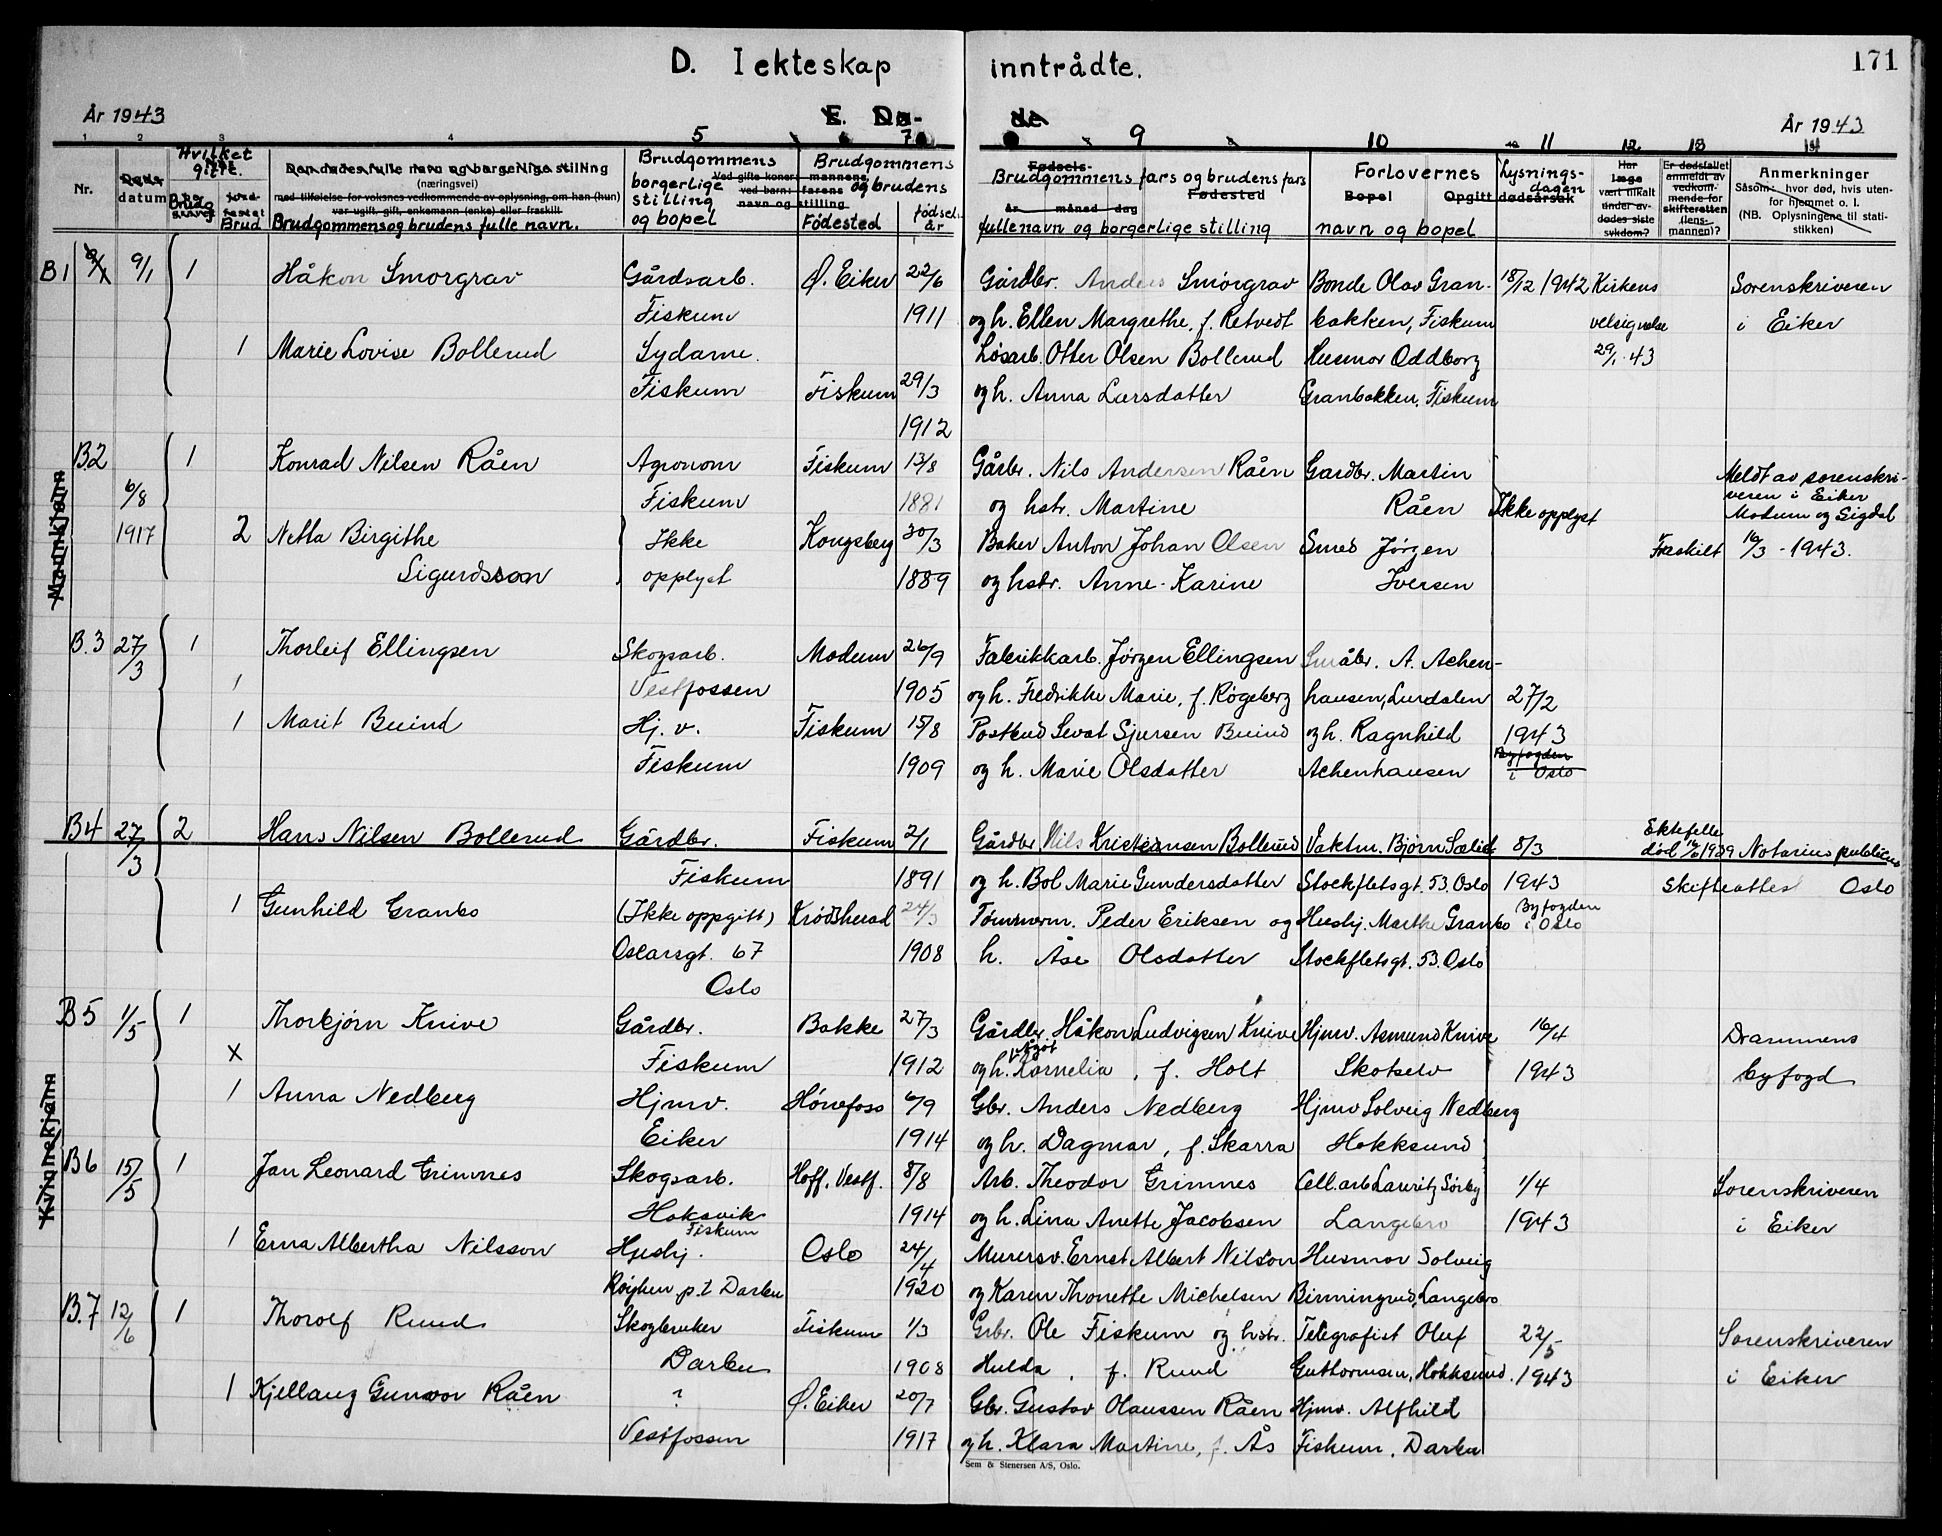 171
D. I ekteskap inntrådte.
År 1943 E. Dø- de År 1943
1 2 3 4 5 6 7 8 9 10 11 12 13 14
Nr.
Døds datum
Hvilket gifte.
Brudg.
Brud
Den dødes fulle navn og borgerlige stilling
(næringsvei)
med tilføielse for voksnes vedkommende av oplysning, om han (hun)
var ugift, gift, enkemann (enke) eller fraskilt
Brudgommens og brudens fulle navn.
Brudgommens borgerlige stilling og bopel
Ved gifte koner: mannens
ved barn: farens
navn og stilling
Brudgommens og brudens
Fødested
fødsels år
Fødsels-
Brudgommens fars og brudens fars
Fødested
år måned dag
fulle navn og borgerlige stilling
Forlovernes
Bopel
navn og bopel
Opgitt dødsårsak
Lysnings-dagen
Har læge vært tilkalt under avdødes siste sykdom?
Er dødsfallet anmeldt av vedkommende for skifteretten (lensmannen)?
Anmerkninger
Såsom: hvor død, hvis utenfor hjemmet o. l.
(NB. Oplysningene til statistikken)
Mannkjønn
Kvinnekjønn
B1 9/1 1 Håkon Smørgrav Gårdsarb. Ø. Eiker 22/6 Gårdbr. Anders Smørgrav Bonde Olav Gran- 18/12 1942 Kirkens Sorenskriveren
Fiskum 1911 og h. Ellen Margrethe, f. Retvedt bakken, Fiskum velsignelse i Eiker
1 Marie Lovise Bollerud Sydame. Løsarb. Otter Olsen Bollerud Husmor Oddborg 29/1 43
Fiskum Fiskum 29/3 og h. Anna Larsdatter Granbakken, Fiskum
1912
B2 1 Konrad Nilsen Råen Agronom Fiskum 13/8 Gårbr. Nils Andersen Råen Gardbr. Martin Meldt av sorenskri-
6/8 Fiskum 1881 og hstr. Martine Råen Ikke opplyst veren i Eiker Modum og Sigdal
1917 2 Netta Birgithe Ikke Kongsberg 30/3 Baker Anton Johan Olsen Smed Jørgen Fraskilt 16/3 - 1943.
Sigurdsson opplyst 1889 og hstr. Anne-Karine Iversen
B.3 27/3 1 Thorleif Ellingsen Skogsarb. Modum 26/9 Fabrikkarb. Jørgen Ellingsen Småbr. A. Achen-
1 Vestfossen 1905 og h. Fredrikke Marie, f. Røgeberg hausen, Lurdalen 27/2
1 Marit Buind Hj. v. Fiskum 15/8 Postbud Sevat Sjursen Buind og h. Ragnhild 1943
Fiskum 1909 og h. Marie Olsdatter Achenhausen Byfogden i Oslo
B4 27/3 2 Hans Nilsen Bollerud Gårdbr. Fiskum 2/1 Gårdbr Nils Kristensen Bollerud Vaktm. Bjørn Sælid 8/3 Ektefelle død 1929 Notarius publicus
Fiskum 1891 og h. Bol Marie Gundersdatter Stockfletsgt. 53. Oslo 1943 Skifteattest Oslo
1 Gunhild Granbo (Ikke oppgitt) Krødsherad 24/3 Tømmerm. Peder Eriksen og Hushj. Marthe Granbo Byfogden i Oslo
Oscarsgt. 67 1908 h. Åse Olsdatter Stockfletsgt. 53. Oslo
Oslo
B5 1/5 1 Thorbjørn Knive Gårdbr. Bakke 27/3 Gårdbr. Håkon Ludvigsen Knive Hjmv. Asmund Knive 16/4 Drammens
x Fiskum 1912 og h. Kornelia, f. Holt Skotselv 1943 byfogd
1 Anna Nedberg Hjmv. Hønefoss 6/9 Gbr. Anders Nedberg Hjmv Solveig Nedberg
Eiker 1914 og h. Dagmar, f. Skarra Hokksund
B6 15/5 1 Jan Leonard Grimnes Skogsarb. Hoff. Vestf. 8/8 Arb. Theodor Grimnes Cell. arb Lauritz Sørby 1/4 Sorenskriveren
Hoksvik Fiskum 1914 og h. Lina Anette Jacobsen Langebro 1943 i Eiker
1 Erna Albertha Nilsson Hjeshj. Oslo 24/4 Murersv. Ernst Albert Nilsson Husmor Solveig
Røyken p.t Darbu 1920 og Karen Thonette Michelsen Birmingrud, Langebro
B.7 12/6 1 Thorolf Ruud Skogbruker Fiskum 1/3 Grbr. Ole Fiskum og hstr. Telegrafist Oluf 22/5 Sorenskriveren
Darbu 1908 Hulda, f. Ruud Guthormsen, Hokksund. 1943 i Eiker
1 Kjellaug Gunvor Råen ? Ø. Eiker 20/7 Gbr. Gustav Olaussen Råen Hjmv. Alfhild
Vestfossen 1917 og h. Klara Martine, f. Ås Fiskum, Darbu
Sem & Stenersen A/S, Oslo.